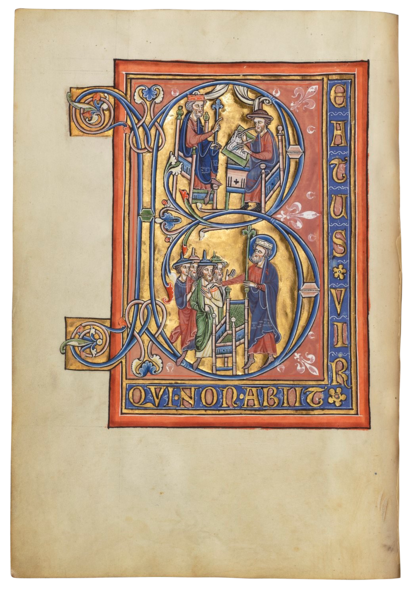 B
EATUS VIR
QVI·NON·ABIIT